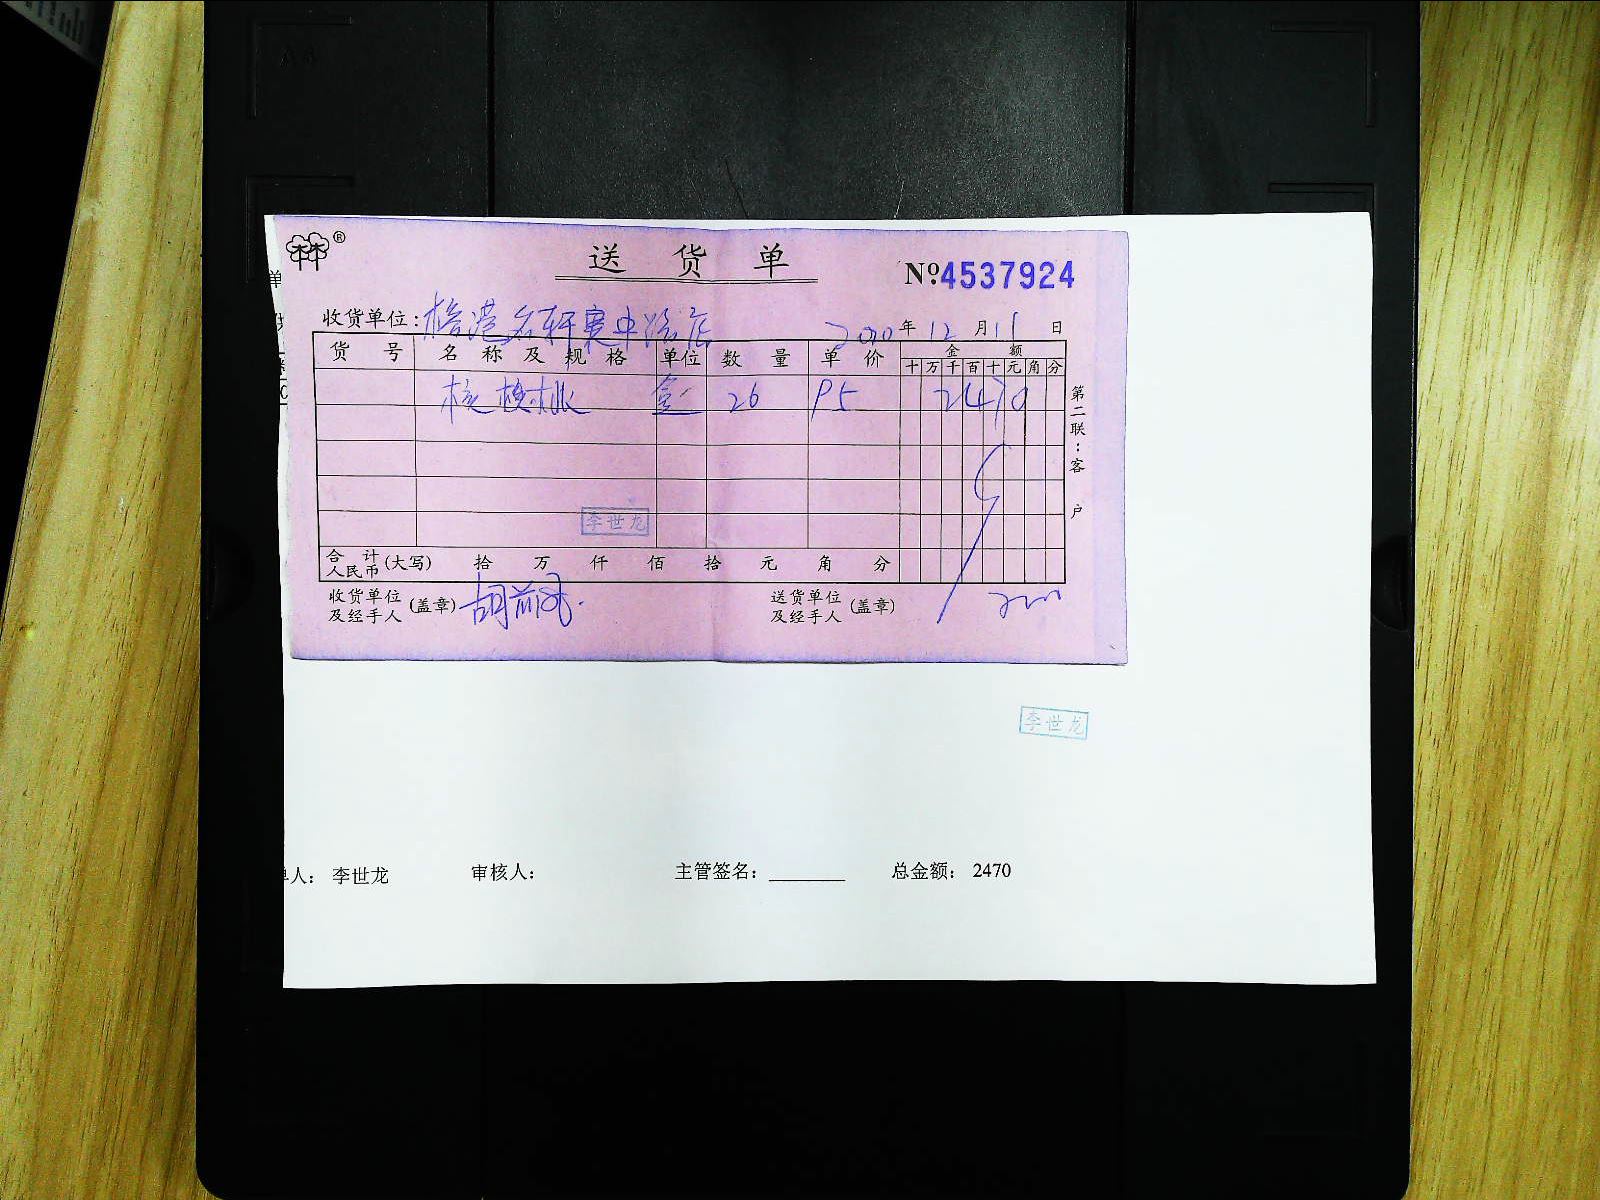 林®
送货单
№4537924
收货单位:
2020年12月11日
货号 名称及规格 单位 数量 单价 金额
十万千百十元角分
盒 26 95 2470
第二联:客户
李世龙
合计人民币(大写) 拾 万 仟 佰 拾 元 角 分
收货单位及经手人(盖章)
送货单位及经手人(盖章)
李世龙
单人: 李世龙 审核人: 主管签名:______ 总金额: 2470